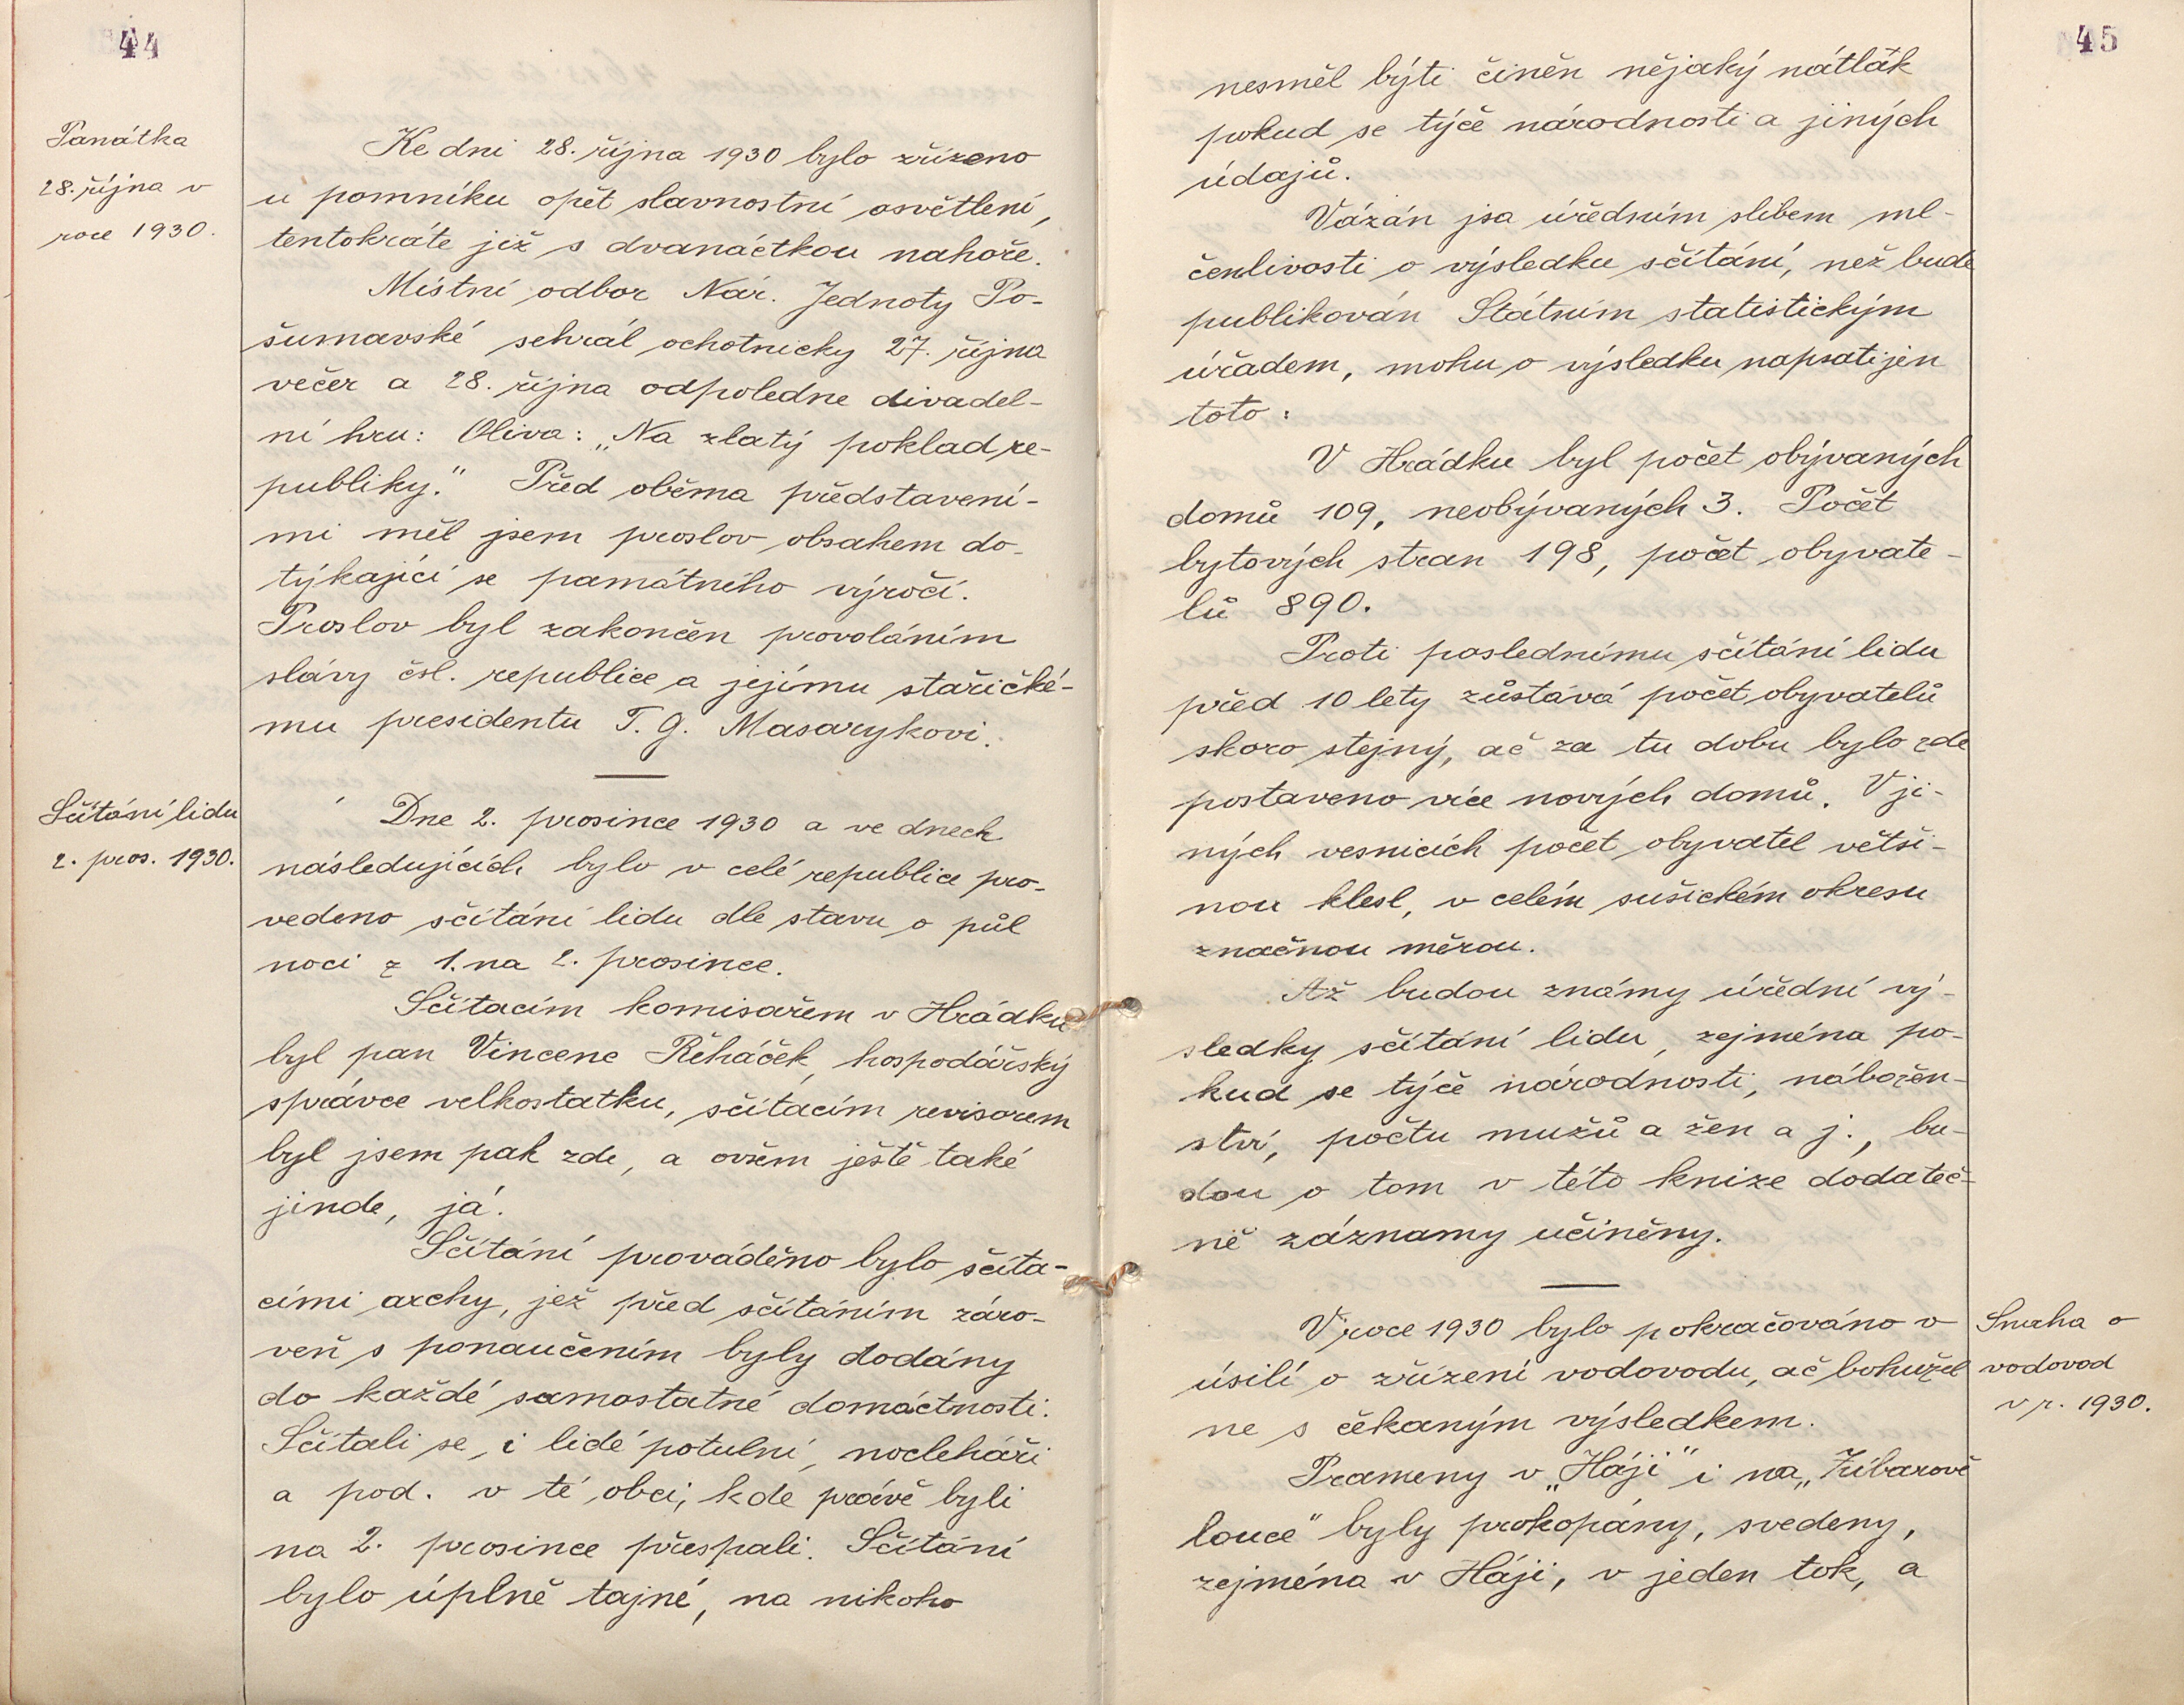 44
Panátka
28. října v
roce 1930.
Ke dni 28. října 1930 bylo zřízeno
u pomníku opět slavnostní osvětlení,
tentokráte již s dvanáctkou nahoře.
Místní odbor Nár. Jednoty Po-
šumavské sehrál ochotnicky 27. října
večer a 28. října odpoledne divadel-
ní hru: Oliva: „Na zlatý poklad re-
publiky." Před oběma představení-
mi měl jsem proslov obsahem do-
týkající se památného výročí.
Proslov byl zakončen provoláním
slávy čsl. republice a jejímu stařičké-
mu presidentu T. G. Masarykovi.
Sčítání lidu
2. pros. 1930.
Dne 2. prosince 1930 a ve dnech
následujících bylo v celé republice pro-
vedeno sčítání lidu dle stavu o půl
noci z 1. na 2. prosince.
Sčítacím komisařem v Hrádku
byl pan Vincenc Řeháček, hospodářský
správce velkostatku, sčítacím revisorem
byl jsem pak zde, a ovšem ještě také
jinde, já.
Sčítání prováděno bylo sčíta-
cími archy, jež před sčítáním záro-
veň s ponaučením byly dodány
do každé samostatné domácnosti.
Sčítali se i lidé potulní, noclehaři
a pod. v té obci, kde právě byli
na 2. prosince přespali. Sčítání
bylo úplně tajné, na nikoho
45
nesměl býti činěn nějaký nátlak
pokud se týče národnosti a jiných
údajů.
Vázán jsa úředním slibem ml-
čenlivosti o výsledku sčítání, než bude
publikován Státním statistickým
úřadem, mohu o výsledku napsati jen
toto:
V Hrádku byl počet obývaných
domů 109, neobývaných 3. Počet
bytových stran 198, počet obyvate-
lů 890.
Proti poslednímu sčítání lidu
před 10 lety zůstává počet obyvatelů
skoro stejný, ač za tu dobu bylo zde
postaveno více nových domů. V ji-
ných vesnicích počet obyvatel větši-
nou klesl, v celém sušickém okresu
značnou měrou.
Až budou známy úřední vý-
sledky sčítání lidu, zejména po-
kud se týče národnosti, nábožen-
ství, počtu mužů a žen a j., bu-
dou o tom v této knize dodateč-
ně záznamy učiněny.
V roce 1930 bylo pokračováno v
úsilí o zřízení vodovodu, ač bohužel
ne s čekaným výsledkem.
Prameny v „Háji" i na „Žíbarově
louce" byly prokopány, svedeny,
zejména v Háji, v jeden tok, a
Snaha o
vodovod
v r. 1930.